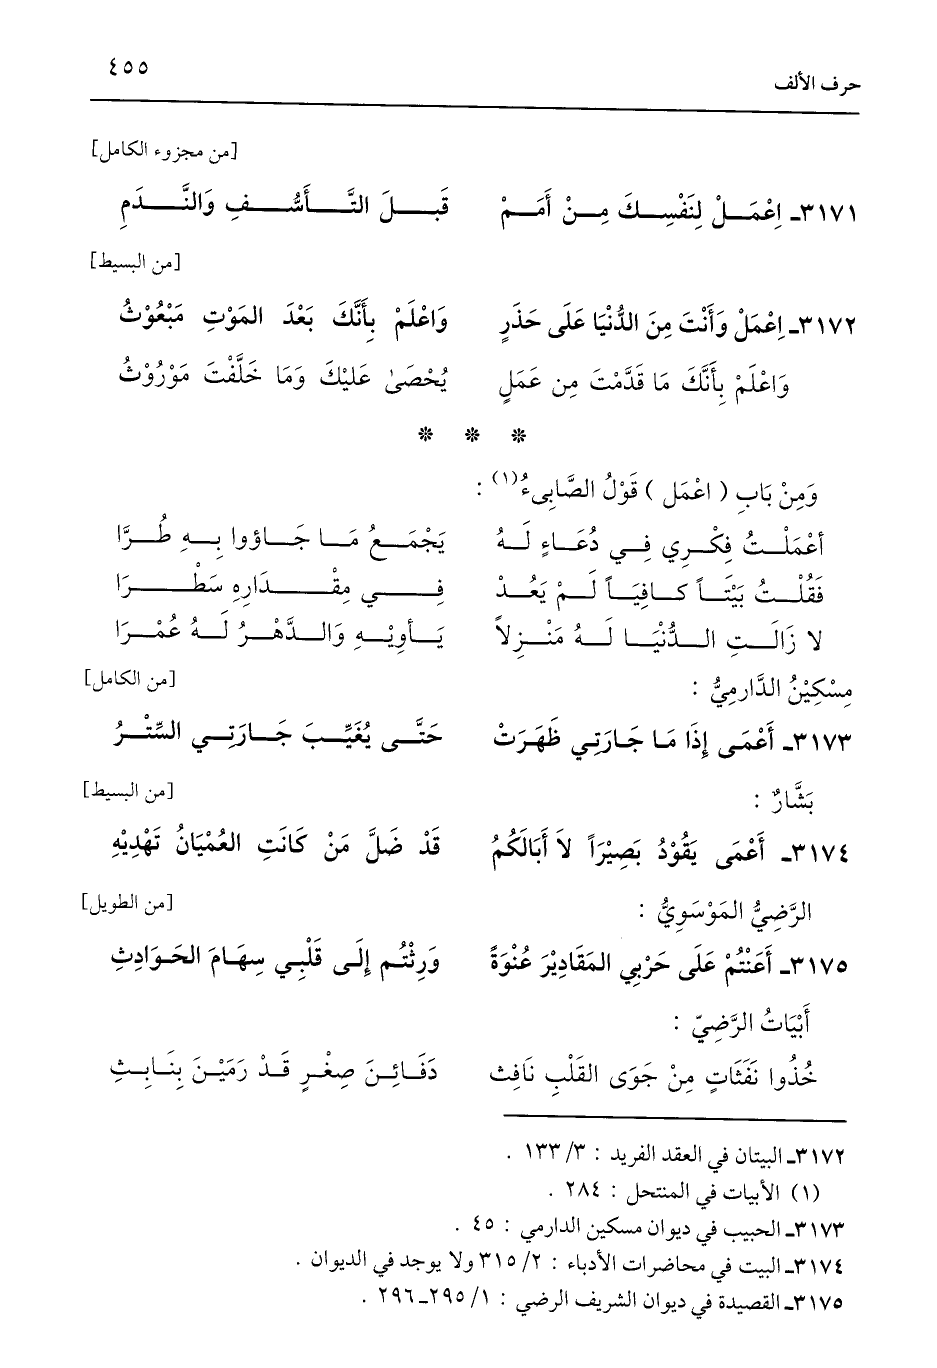 حرف الألف ٤٥٥
[من مجزوء الكامل]
٣١٧١ـ اِعْمَـلْ لِنَفْسِـكَ مِـنْ أَمَـمْ قَبـلَ التَّـأَسُّـفِ وَالنَّـدَمِ
[من البسيط]
٣١٧٢ـ اِعْمَلْ وَأَنْتَ مِنَ الدُّنْيَا عَلَى حَذَرٍ وَاعْلَمْ بِأَنَّكَ بَعْدَ المَوْتِ مَبْعُوْثُ
وَاعْلَمْ بِأَنَّكَ مَا قَدَّمْتَ مِن عَمَلٍ يُحْصَىٰ عَلَيْكَ وَمَا خَلَّفْتَ مَوْرُوْثُ
* * *
وَمِنْ بَابِ ( اعْمَل ) قَوْلُ الصَّابِيءُ(١) :
أَعْمَلْـتُ فِكْـرِي فِـي دُعَـاءٍ لَـهُ يَجْمَـعُ مَـا جَـاؤوا بِـهِ طُـرَّا
فَقُلْـتُ بَيْتَـاً كـافِيَـاً لَـمْ يَعُـدْ فِـي مِقْـدَارِهِ سَطْـرَا
لا زَالَـتِ الـدُّنْيَـا لَـهُ مَنْـزِلاً يَـأوِيْـهِ وَالـدَّهْـرُ لَـهُ عُمْـرَا
مِسْكِيْنُ الدَّارِمِيُّ : [من الكامل]
٣١٧٣ـ أَعْمَـى إِذَا مَـا جَـارَتِي ظَهَرَتْ حَتَّـى يُغَيِّـبَ جَـارَتِـي السِّتْـرُ
بَشَّارٌ : [من البسيط]
٣١٧٤ـ أَعْمَى يَقُوْدُ بَصِيْرَاً لاَ أَبَالَكُمُ قَدْ ضَلَّ مَنْ كَانَتِ العُمْيَانُ تَهْدِيْهِ
الرَّضِيُّ المَوْسَوِيُّ : [من الطويل]
٣١٧٥ـ أَعَنْتُمْ عَلَى حَرْبِي المَقَادِيْرَ عُنْوَةً وَرِثْتُم إِلَى قَلْبِي سِهَامَ الحَوَادِثِ
أَبْيَاتُ الرَّضِيّ :
خُذُوا نَفَثَاتٍ مِنْ جَوَى القَلْبِ نَافِث دَفَـائِـنَ صِغْـرٍ قَـدْ رَمَيْـنَ بِنَـابِـثِ
٣١٧٢ـ البيتان في العقد الفريد : ٣/ ١٣٣ .
(١) الأبيات في المنتحل : ٢٨٤ .
٣١٧٣ـ الحبيب في ديوان مسكين الدارمي : ٤٥ .
٣١٧٤ـ البيت في محاضرات الأدباء : ٢/ ٣١٥ ولا يوجد في الديوان .
٣١٧٥ـ القصيدة في ديوان الشريف الرضي : ١/ ٢٩٥ـ٢٩٦ .